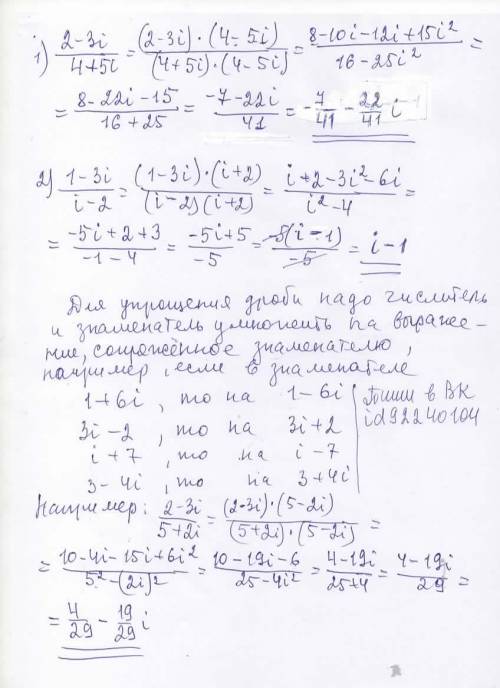 1) (2-3i)/(4+5i) = ((2-3i)·(4-5i))/((4+5i)·(4-5i)) = (8-10i-12i+15i²)/(16-25i²) =
= (8-22i-15)/(16+25) = (-7-22i)/41 = -7/41 - 22/41 i
2) (1-3i)/(i-2) = ((1-3i)·(i+2))/((i-2)(i+2)) = (i+2-3i²-6i)/(i²-4) =
= (-5i+2+3)/(-1-4) = (-5i+5)/(-5) = (-5(i-1))/(-5) = i-1
Для упрощения дроби надо числитель
и знаменатель умножить на выраже-
ние, сопряжённое знаменателю,
например, если в знаменателе
1+6i, то на 1-6i
3i-2, то на 3i+2
i+7, то на i-7
3-4i, то на 3+4i
Пиши в ВК
id92240104
Например: (2-3i)/(5+2i) = ((2-3i)·(5-2i))/((5+2i)·(5-2i)) =
= (10-4i-15i+6i²)/(5²-(2i)²) = (10-19i-6)/(25-4i²) = (4-19i)/(25+4) = (4-19i)/29 =
= 4/29 - 19/29 i